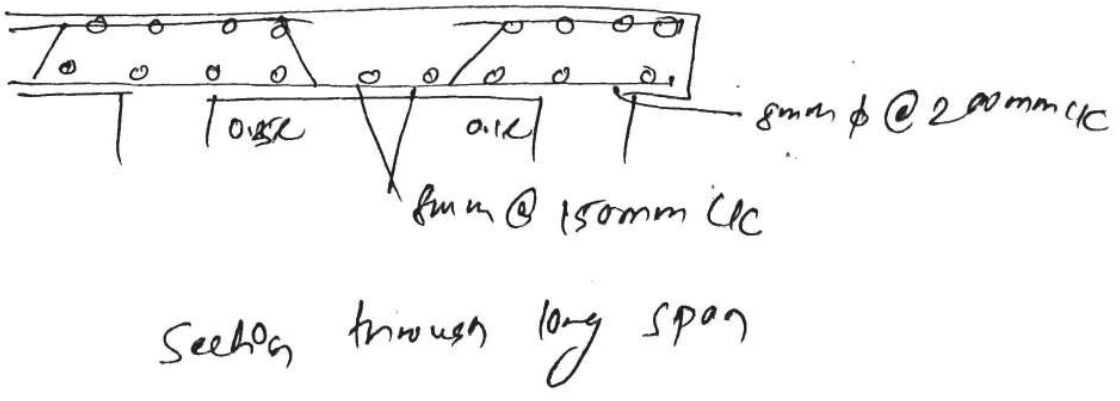 0.25l
0.1l
8mm ϕ @ 200mm c/c
8mm @ 150mm c/c
Section through long span